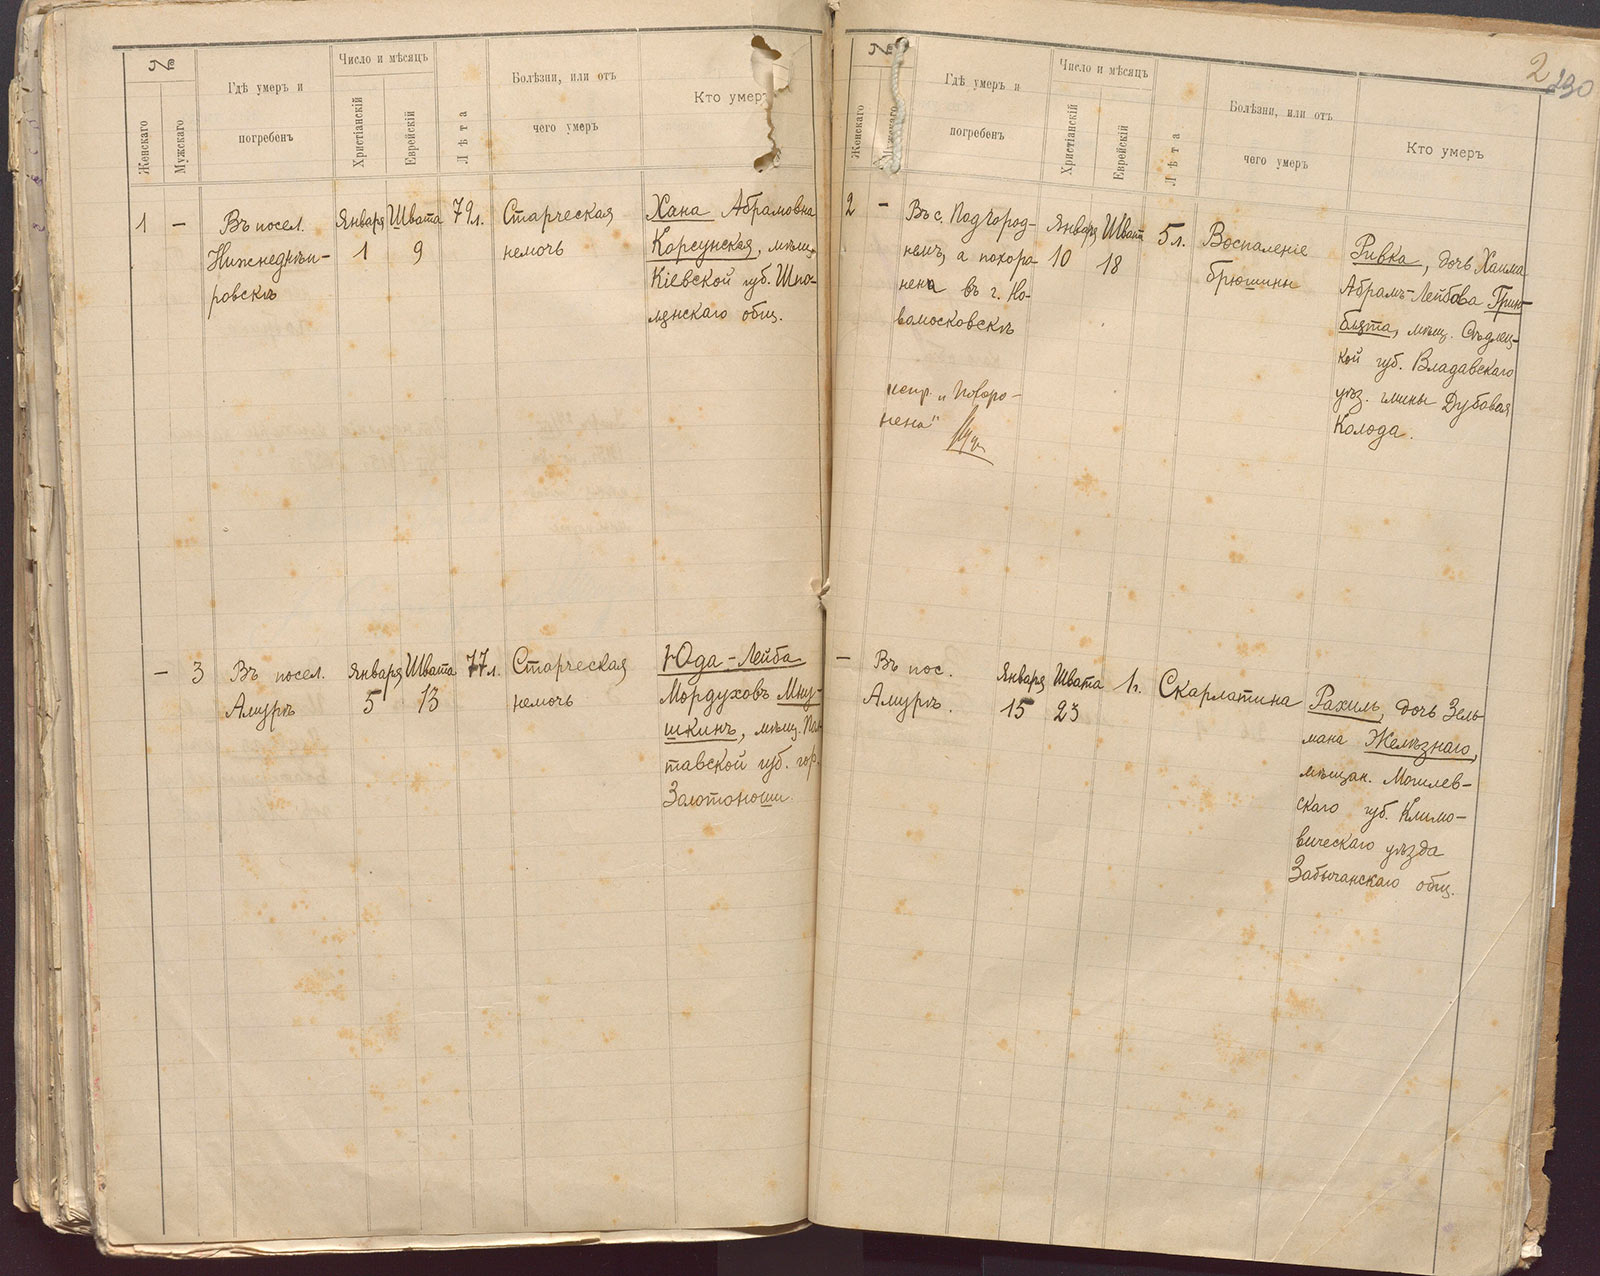 №
Женскаго
Мужскаго
Гдѣ умеръ и
погребенъ
Число и мѣсяцъ
Христіанскій
Еврейскій
Лѣта
Болѣзни, или отъ
чего умеръ
Кто умеръ
1
—
Въ посел.
Нижнеднѣп-
ровскѣ
Января
1
Швата
9
79 л.
Старческая
немочь
Хана Абрамовна
Корсунская, мѣщ.
Кіевской губ. Шпо-
лянскаго общ.
—
3
Въ посел.
Амурѣ
Января
5
Швата
13
77 л.
Старческая
немочь
Юда-Лейба
Мордуховъ Мну-
шкинъ, мѣщ. Пол-
тавской губ. гор.
Золотоноши
№
Женскаго
Мужскаго
Гдѣ умеръ и
погребенъ
Число и мѣсяцъ
Христіанскій
Еврейскій
Лѣта
Болѣзни, или отъ
чего умеръ
Кто умеръ
2
230
2
—
Въ с. Подгород-
немъ, а похоро-
нена въ г. Но-
вомосковскѣ
испр. „похоро-
нена“
Января
10
Швата
18
5 л.
Воспаленіе
брюшины
Ривка, дочь Хаима
Абрамъ-Лейбова Грин-
блята, мѣщ. Сѣдлец-
кой губ. Владавскаго
уѣз. гмины Дубовая
Колода.
—
Въ пос.
Амурѣ.
Января
15
Швата
23
1 г.
Скарлатина
Рахиль, дочь Зель-
мана Желѣзнаго,
мѣщан. Могилев-
скаго губ. Климо-
вическаго уѣзда
Забычанскаго общ.